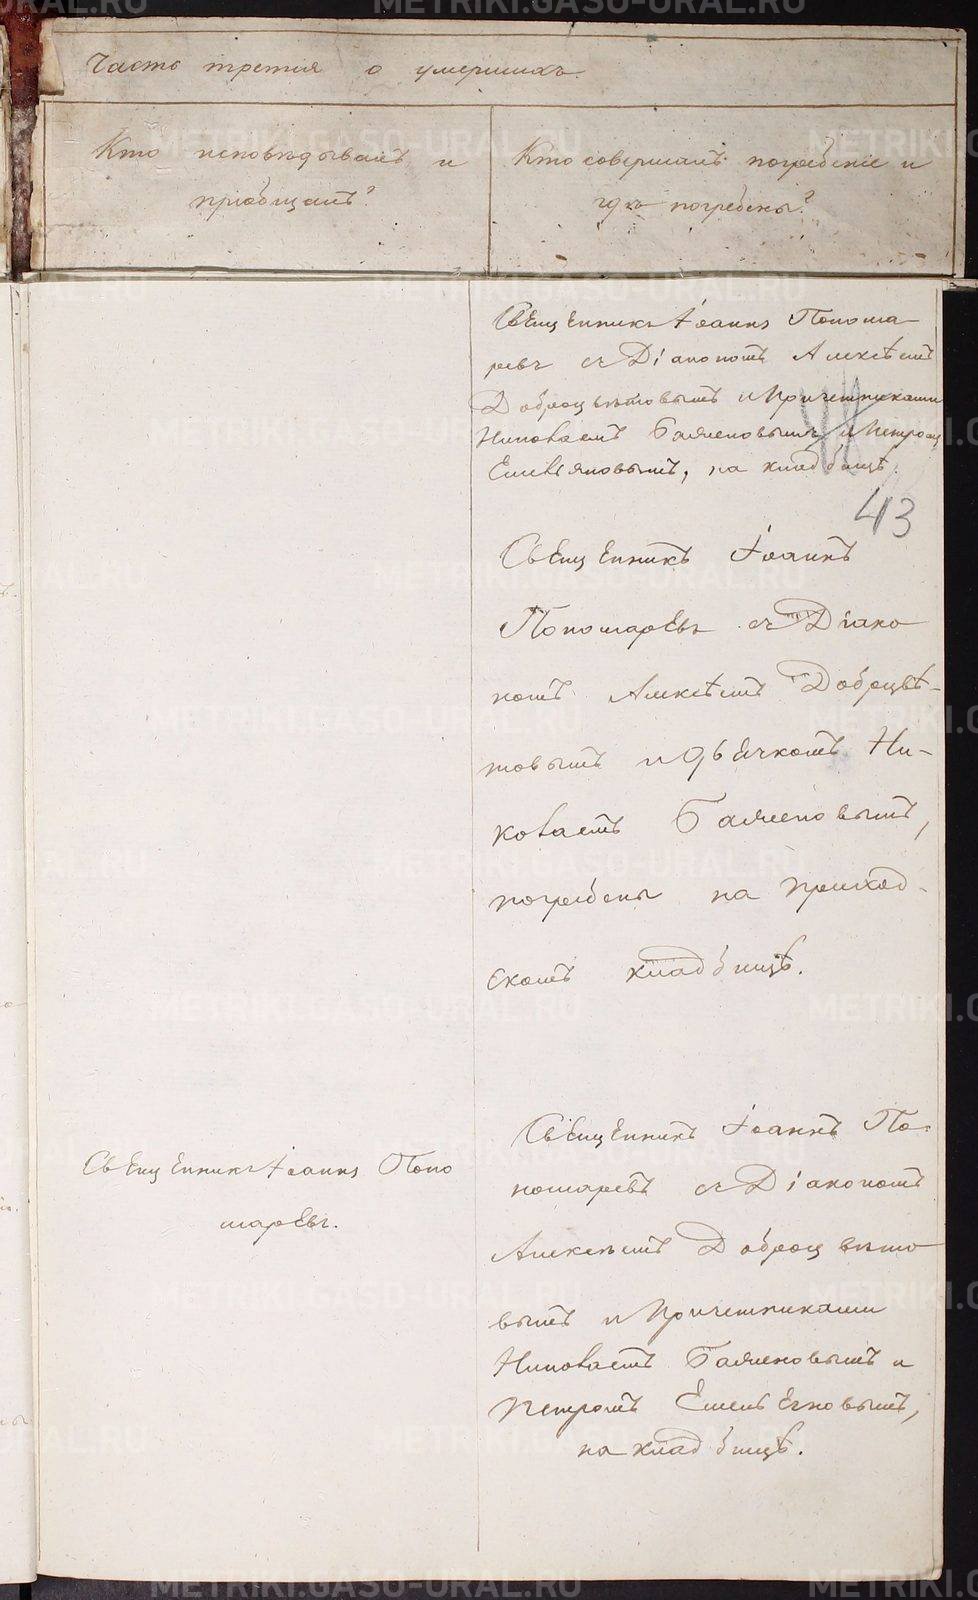 Часть третія о умершихъ.
Кто исповѣдывалъ и
пріобщалъ?
Кто совершалъ погребеніе и
гдѣ погребены?
Священникъ Іоаннъ Понома-
ревъ съ Діакономъ Алексѣемъ
Доброцвѣтовымъ и Причетниками
Николаемъ и Петромъ
Емельяновымъ, на кладбищѣ.
43
Священникъ Іоаннъ
Пономаревъ съ Діако
номъ Алексѣемъ Доброцвѣ-
товымъ и Дьячкомъ Ни-
колаемъ
погребены на приход-
скомъ кладбищѣ.
Священникъ Іоаннъ Поно
маревъ.
Священникъ Іоаннъ По-
номаревъ съ Діакономъ
Алексѣемъ Доброцвѣто
вымъ и Причетниками
Николаемъ и
Петромъ Емельяновымъ,
на кладбищѣ.
METRIKI.GASO-URAL.RU